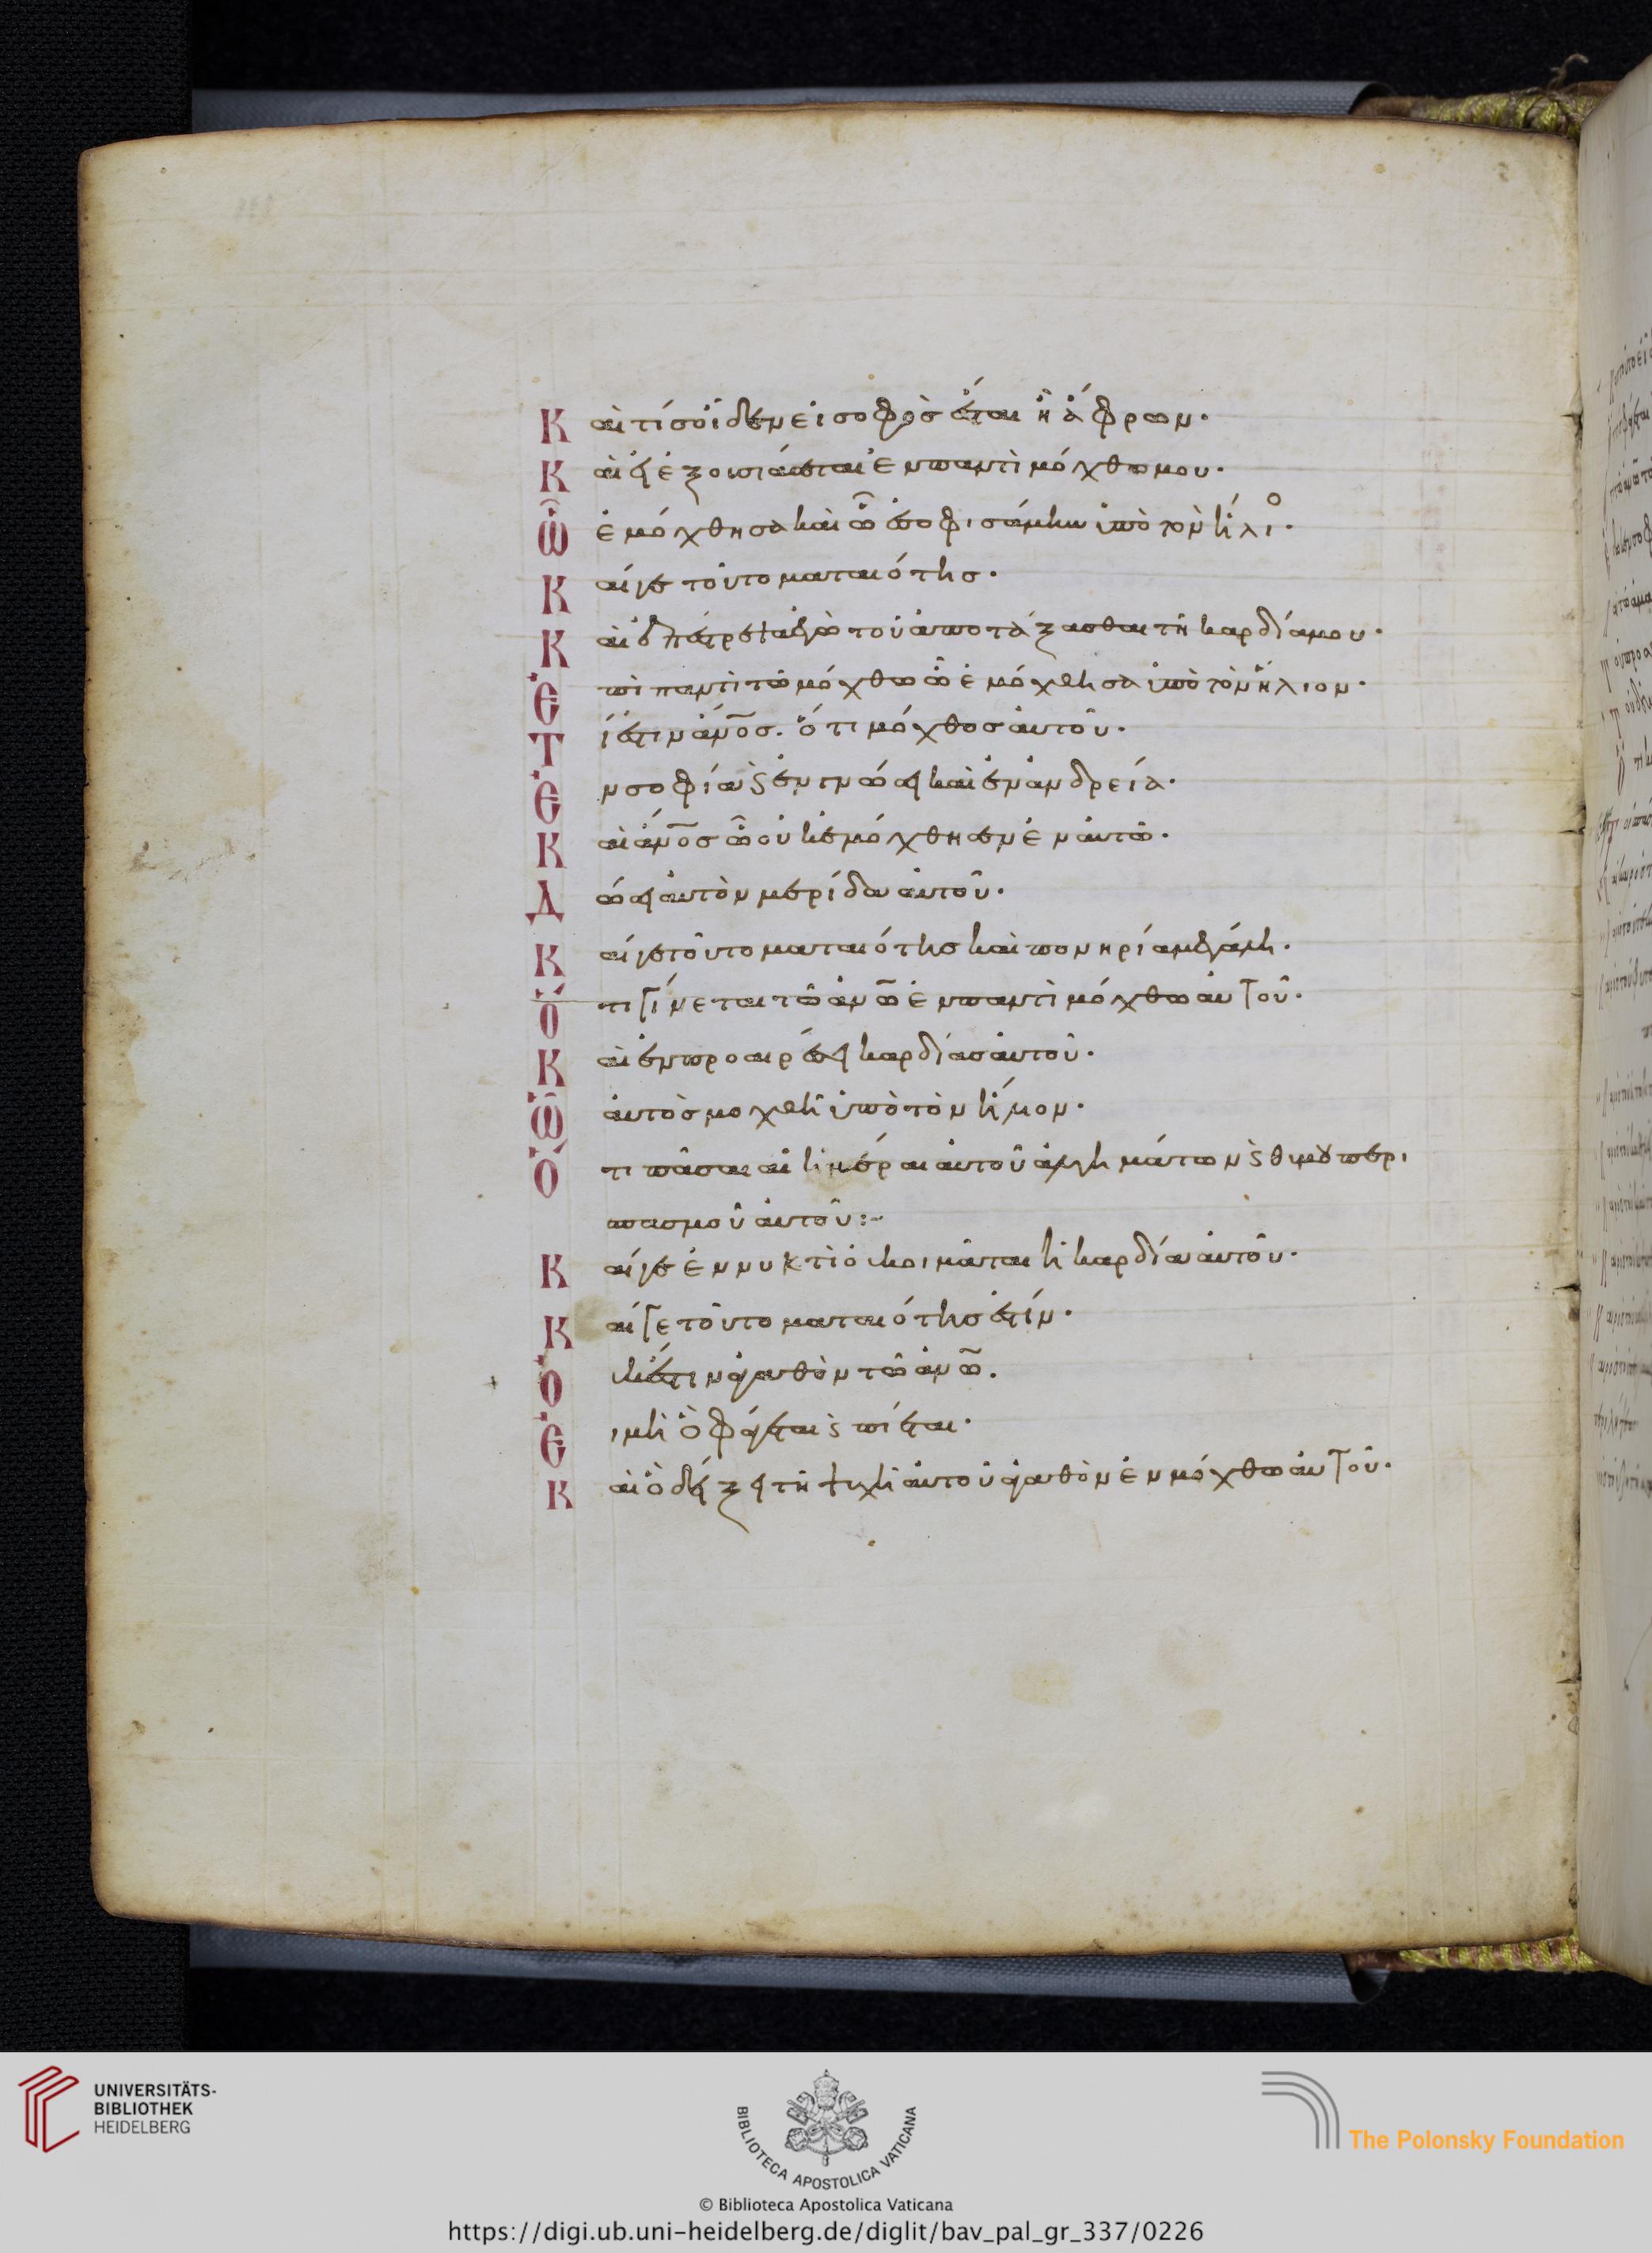 Καὶ τίς οἶδεν εἰ σοφὸς ἔσται ἢ ἄφρων·
Καὶ εἰ ἐξουσιάσεται ἐν παντὶ μόχθω μου·
Ὧ ἐμόχθησα καὶ ὧ ἐσοφισάμην ὑπὸ τὸν ἥλιο·
Καίγε τοῦτο ματαιότης·
Καὶ ἐπέστρεψα ἐγὼ τοῦ ἀποτάξασθαι τῆ καρδία μου·
Ἐπὶ παντὶ τῶ μόχθω ὧ ἐμόχθησα ὑπὸ τὸν ἥλιον·
Τί ἔστιν ἀνος. ὅτι μόχθος αὐτοῦ·
Ἐν σοφία ϛ ἐν γνώσει καὶ ἐν ἀνδρεία·
Καὶ ἀνος ὧ οὐκ ἐμόχθησεν ἐν αὐτῶ·
Δώσει αὐτὸν μερίδα αὐτοῦ·
Καίγε τοῦτο ματαιότης καὶ πονηρία μεγάλη·
Ὅτι γίνεται τῶ ἀνω ἐν παντὶ μόχθω αὐτοῦ·
Καὶ ἐν προαιρέσει καρδίας αὐτοῦ·
Ὧ αὐτὸς μοχθεῖ ὑπὸ τὸν ἥλιον·
Ὅτι πᾶσαι αἱ ἡμέραι αὐτοῦ ἀλγημάτων ϛ θυμοῦ περι
σπασμοῦ αὐτοῦ:~
Καίγε ἐν νυκτὶ οὐ κοιμᾶται ἡ καρδία αὐτοῦ·
Καίγε τοῦτο ματαιότης ἐστίν·
Οὐκ ἔστιν ἀγαθὸν τῶ ἀνω.
Εἰ μὴ ὃ φάγεται ϛ πίεται·
Καὶ ὃ δείξει τῆ ψυχῆ αὐτοῦ ἀγαθὸν ἐν μόχθω αὐτοῦ·
UNIVERSITÄTS-
BIBLIOTHEK
HEIDELBERG
BIBLIOTECA APOSTOLICA VATICANA
The Polonsky Foundation
© Biblioteca Apostolica Vaticana
https://digi.ub.uni-heidelberg.de/diglit/bav_pal_gr_337/0226